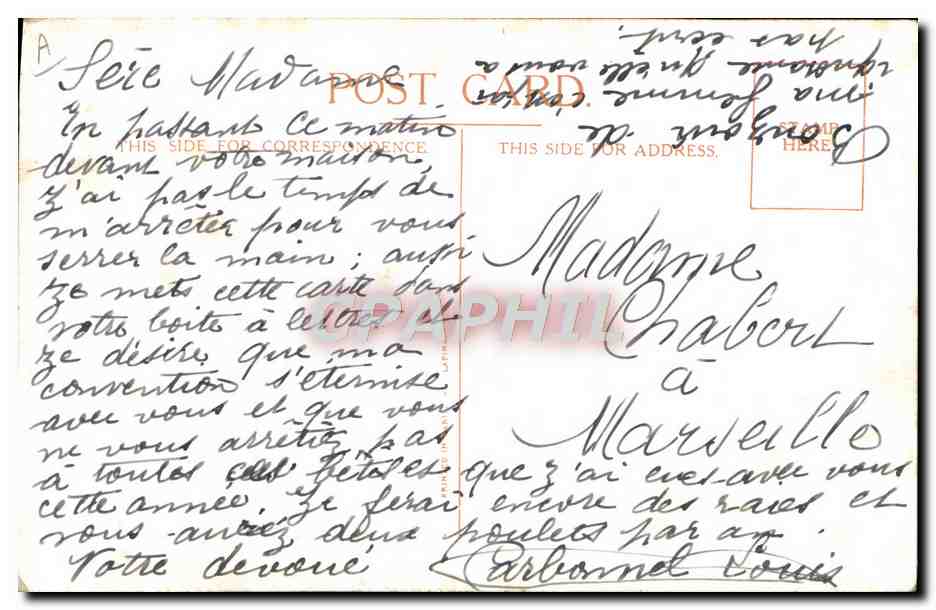 A
Sère Madame
En passant ce matin
devant votre maison,
z'ai pas le temps de
m'arrêter pour vous
serrer la main ; aussi
ze mets cette carte dans
votre boite à lettres et
ze désire que ma
convention s'éternise
avec vous et que vous
ne vous arrêtiez pas
à toutes ces bétises que z'ai eues avec vous
cette année. Ze ferai encore des raies et
vous aurez deux poulets par an.
Votre devoué Carbonnel Louis
POST CARD.
THIS SIDE FOR CORRESPONDENCE.
THIS SIDE FOR ADDRESS.
STAMP
HERE
Bonzour de
ma femme
ignorante qu'elle vous a
pas ecrit.
Madame
Chabert
à
Marseille
CPAPHIL